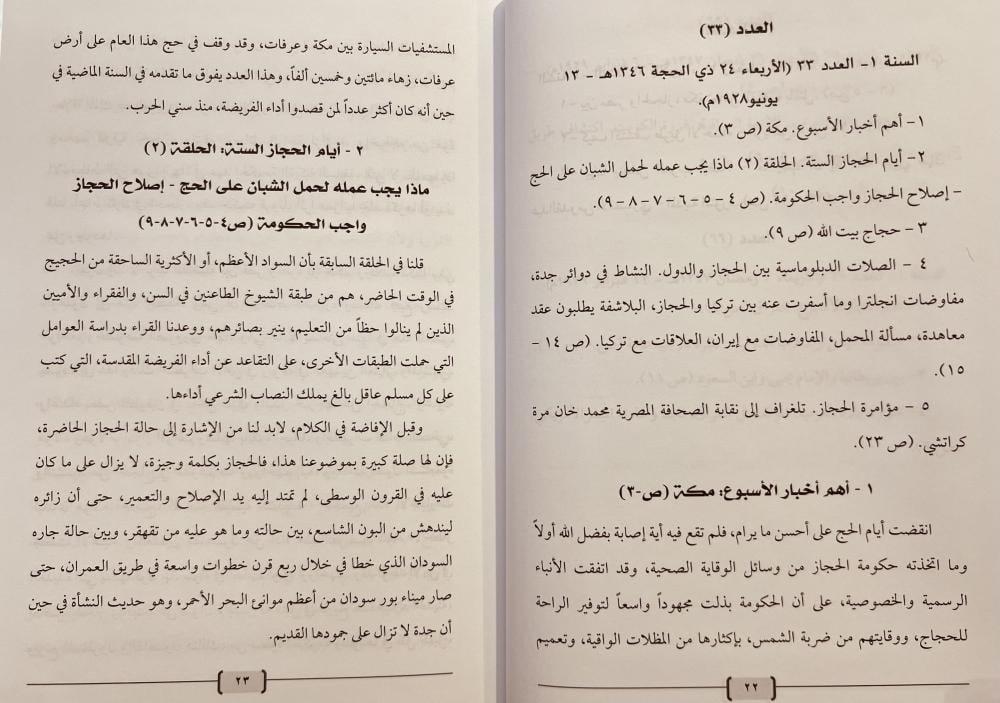 العدد (٣٣)
السنة ١- العدد ٣٣ (الأربعاء ٢٤ ذي الحجة ١٣٤٦هـ - ١٣
يونيو١٩٢٨م).
١- أهم أخبار الأسبوع. مكة (ص ٣).
٢- أيام الحجاز الستة. الحلقة (٢) ماذا يجب عمله لحمل الشبان على الحج
– إصلاح الحجاز واجب الحكومة. (ص ٤ – ٥ – ٦ – ٧ – ٨ – ٩).
٣ – حجاج بيت الله (ص ٩).
٤ – الصلات الدبلوماسية بين الحجاز والدول. النشاط في دوائر جدة،
مفاوضات انجلترا وما أسفرت عنه بين تركيا والحجاز، البلاشفة يطلبون عقد
معاهدة، مسألة المحمل، المفاوضات مع إيران، العلاقات مع تركيا. (ص ١٤ –
١٥).
٥ – مؤامرة الحجاز. تلغراف إلى نقابة الصحافة المصرية محمد خان مرة
كراتشي. (ص ٢٣).
١ - أهم أخبار الأسبوع: مكة (ص-٣)
انقضت أيام الحج على أحسن ما يرام، فلم تقع فيه أية إصابة بفضل الله أولاً
وما اتخذته حكومة الحجاز من وسائل الوقاية الصحية، وقد اتفقت الأنباء
الرسمية والخصوصية، على أن الحكومة بذلت مجهوداً واسعاً لتوفير الراحة
للحجاج، ووقايتهم من ضربة الشمس، بإكثارها من المظلات الواقية، وتعميم
٢٢
المستشفيات السيارة بين مكة وعرفات، وقد وقف في حج هذا العام على أرض
عرفات، زهاء مائتين وخمسين ألفاً، وهذا العدد يفوق ما تقدمه في السنة الماضية في
حين أنه كان أكثر عدداً لمن قصدوا أداء الفريضة، منذ سني الحرب.
٢ - أيام الحجاز الستة: الحلقة (٢)
ماذا يجب عمله لحمل الشبان على الحج - إصلاح الحجاز
واجب الحكومة (ص٤-٥-٦-٧-٨-٩)
قلنا في الحلقة السابقة بأن السواد الأعظم، أو الأكثرية الساحقة من الحجيج
في الوقت الحاضر، هم من طبقة الشيوخ الطاعنين في السن، والفقراء والأميين
الذين لم ينالوا حظاً من التعليم، ينير بصائرهم، ووعدنا القراء بدراسة العوامل
التي حملت الطبقات الأخرى، على التقاعد عن أداء الفريضة المقدسة، التي كتب
على كل مسلم عاقل بالغ يملك النصاب الشرعي أداءها.
وقبل الإفاضة في الكلام، لابد لنا من الإشارة إلى حالة الحجاز الحاضرة،
فإن لها صلة كبيرة بموضوعنا هذا، فالحجاز بكلمة وجيزة، لا يزال على ما كان
عليه في القرون الوسطى، لم تمتد إليه يد الإصلاح والتعمير، حتى أن زائره
ليندهش من البون الشاسع، بين حالته وما هو عليه من تقهقر، وبين حالة جاره
السودان الذي خطا في خلال ربع قرن خطوات واسعة في طريق العمران، حتى
صار ميناء بور سودان من أعظم موانئ البحر الأحمر، وهو حديث النشأة في حين
أن جدة لا تزال على جمودها القديم.
٢٣